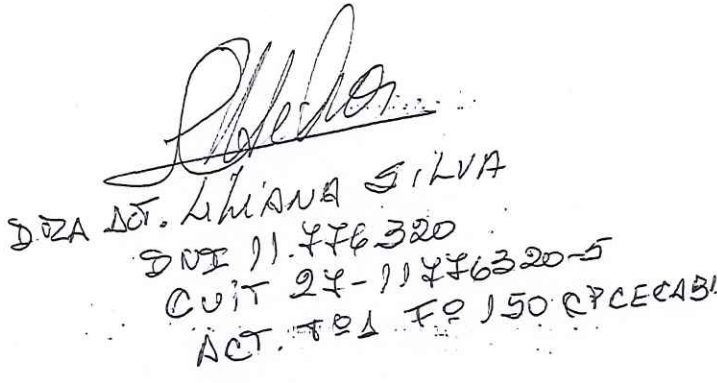 DRA ACT. LILIANA SILVA
DNI 11.776320
CUIT 27-11776320-5
ACT. Tº1 Fº 150 CPCECABA